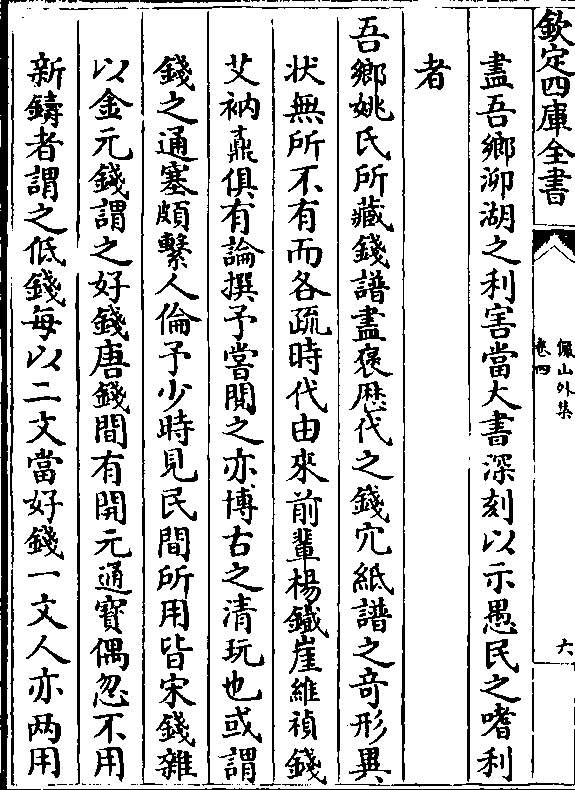 欽定四庫全書
儼山外集
卷四
六
盡吾鄉泖湖之利害當大書深刻以示愚民之嗜利
者
吾鄉姚氏所藏錢譜盡裒歴代之錢穴紙譜之竒形異
状無所不有而各疏時代由來前輩楊鐵崖維禎錢
艾衲鼒俱有論撰予嘗閲之亦博古之清玩也或謂
錢之通塞頗繫人倫予少時見民間所用皆宋錢雜
以金元錢謂之好錢唐錢間有開元通寳偶忽不用
新鑄者謂之低錢每以二文當好錢一文人亦两用